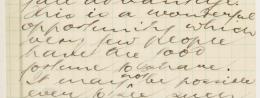 fair advantage.
This is a wonderful
opportunity which
very few people
have the good
fortune to have.
It may not be possible
ever to see such